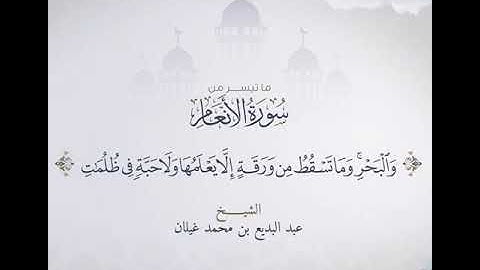 ما تيسر من
سُورَةُ الأَنْعَامِ
وَالْبَحْرِ ۚ وَمَا تَسْقُطُ مِن وَرَقَةٍ إِلَّا يَعْلَمُهَا وَلَا حَبَّةٍ فِي ظُلُمَٰتِ
الشيخ
عبد البديع بن محمد غيلان